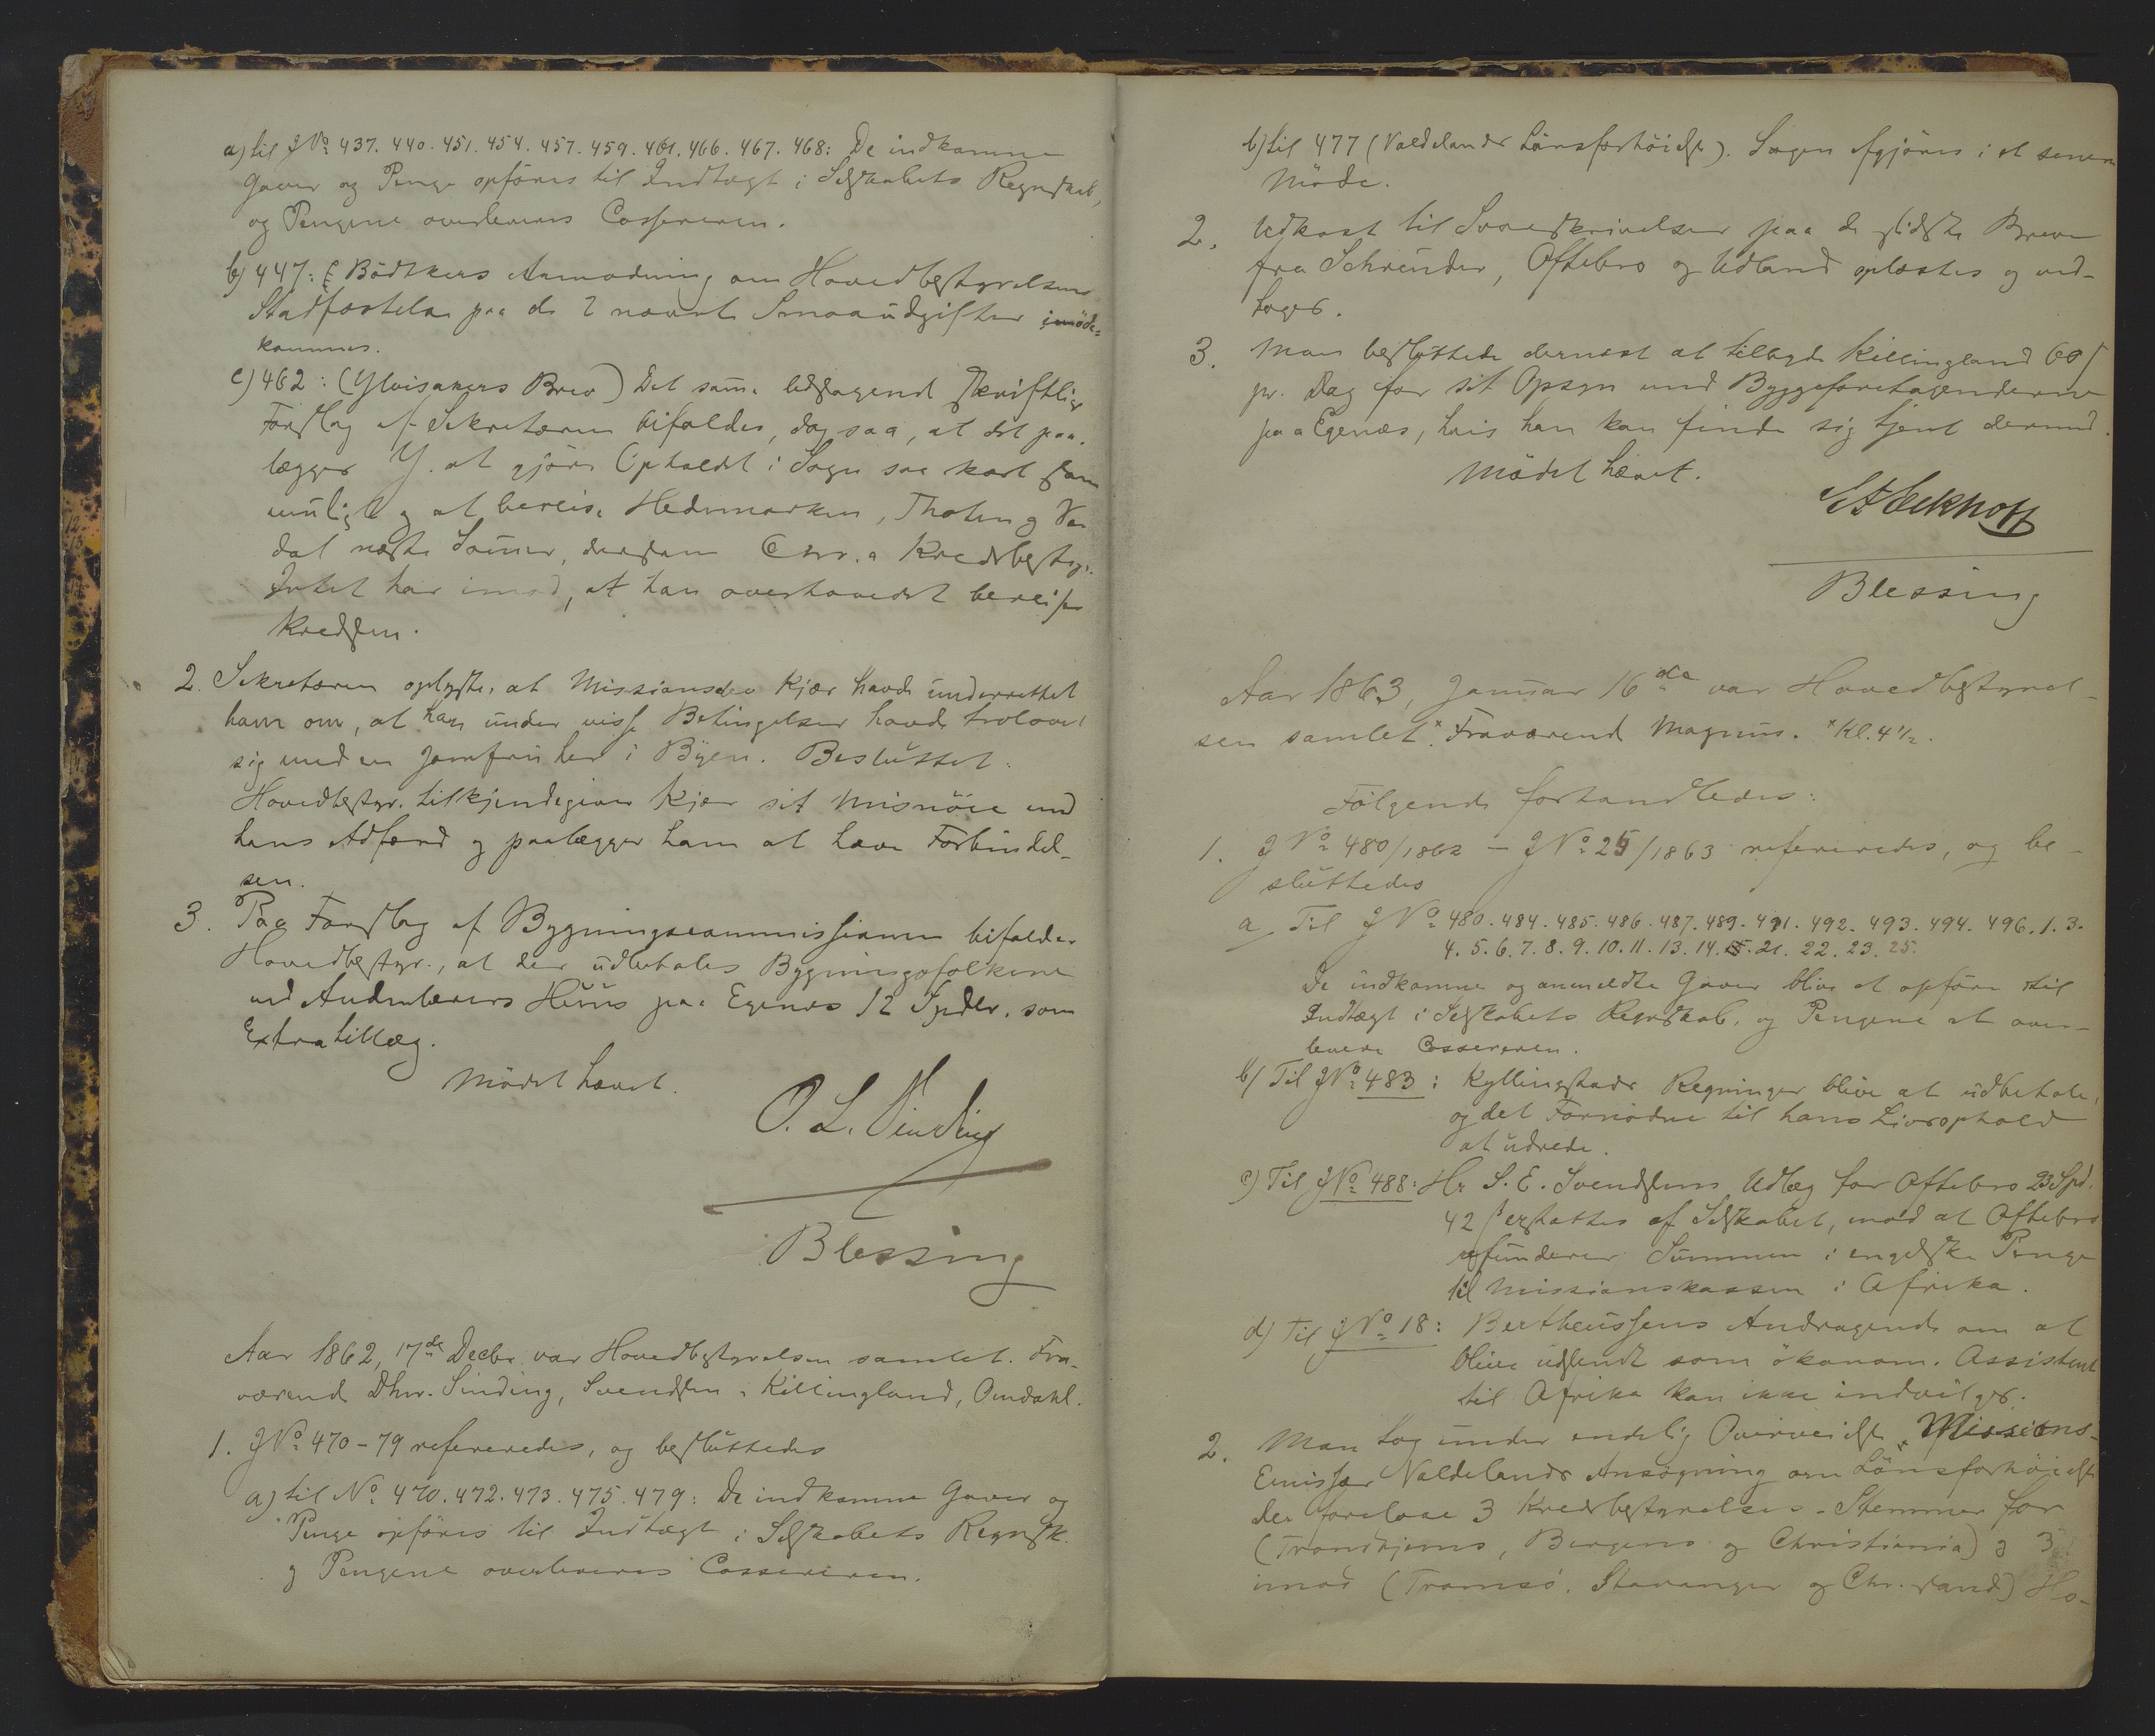 a) til J№ 437. 440. 451. 454. 457. 459. 461. 466. 467. 468: De indkomne
Gaver og Penge opföres til Indtægt i Selskabets Regnskab,
og Pengene overleveres Cassereren.
b) 447: Bödtkers Anmodning om Hovedbestyrelsens
Stadfæstelse paa de 2 nævnte Smaaudgifter imöde-
kommes.
c) 462: (Ylvisakers Brev) Det samme ledsagende skriftlige
Forslag af Sekretæren bifaldes, dog saa, at det paa-
lægges Y. at gjöre Opholdet i Sogn saa kort som
muligt og at bereise Hedemarken, Thoten og Var
dal næste Sommer, dersom Chr.a Kredsbestyr.
Intet har imod, at han overhovedet bereiser
Kredsen.
2. Sekretæren oplyste, at Missionselev Kjær havde underrettet
ham om, at han under visse Betingelser havde trolovet
sig med en Jomfru her i Byen. Besluttet:
Hovedbestyr. tilkjendegiver Kjær sit Misnöie med
hans Adfærd og paalægger ham at hæve Forbindel-
sen.
3. Paa Forslag af Bygningscommissionen bifalder
Hovedbestyr., at der udbetales Bygningsfolkene
ved Andenlærers Huus paa Egenes 12 Spdlr. som
Extratillæg.
Mödet hævet.
O. L. Sinding
Blessing
Aar 1862, 17de Decbr var Hovedbestyrelsen samlet. Fra-
værend Dhrr. Sinding, Svendsen, Killingland, Omdahl.
1. J№ 470-79 refereredes, og besluttedes
a) til № 470. 472. 473. 475. 479: De indkomne Gaver og
Penge opföres til Indtægt i Selskabets Regnsk.
og Pengene overleveres Cassereren.
b) til 477 (Valdelands Lönsforhöielse). Sagen afgjöres i et senere
Möde.
2. Udkast til Svarskrivelser paa de sidste Breve
fra Schreuder, Oftebro og Udland oplæstes og ved-
toges.
3. Man besluttede dernæst at tilbyde Killingland 60 ß
pr. Dag for sit Opsyn med Byggeforetagenderne
paa Egenæs, hvis han kan finde sig tjent dermed.
Mödet hævet.
Eckhoff
Blessing
Aar 1863, Januar 16de var Hovedbestyrel-
sen samlet.x Fraværend Magnus. x Kl. 4 1/2.
Fölgende forhandledes:
1. J№ 480/1862 - J№ 25/1863 refereredes, og be-
sluttedes
a Til J№ 480. 484. 485. 486. 487. 489. 491. 492. 493. 494. 496. 1. 3.
4. 5. 6. 7. 8. 9. 10. 11. 13. 14. 15. 21. 22. 23. 25.
De indkomne og anmeldte Gaver blive at opföre til
Indtægt i Selskabets Regnskab, og Pengene at over-
levere Cassereren.
b) Til J№ 483: Kyllingstads Regninger blive at udbetale,
og det Fornödne til hans Livsophold
at udrede.
c) Til J№ 488: Hr S. E. Svendsens Udlæg for Oftebro 23 Spd.
42 ß erstattes af Selskabet, mod at Oftebro
refunderer Summen i engelske Penge
til Missionskassen i Afrika.
d) Til J№ 18: Bertheussens Andragende om at
blive udsendt som ökonom. Assistent
til Afrika kan ikke indvilges.
2. Man tog under endelig Overveielse Missions-
Emissær Valdelands Ansögning om Lönsforhöielse
der forelaae 3 Kredsbestyrelses-Stemmer for
(Trondhjems, Bergens og Christiania) og 3
imod (Tromsö, Stavanger og Chr.sand) Ho-